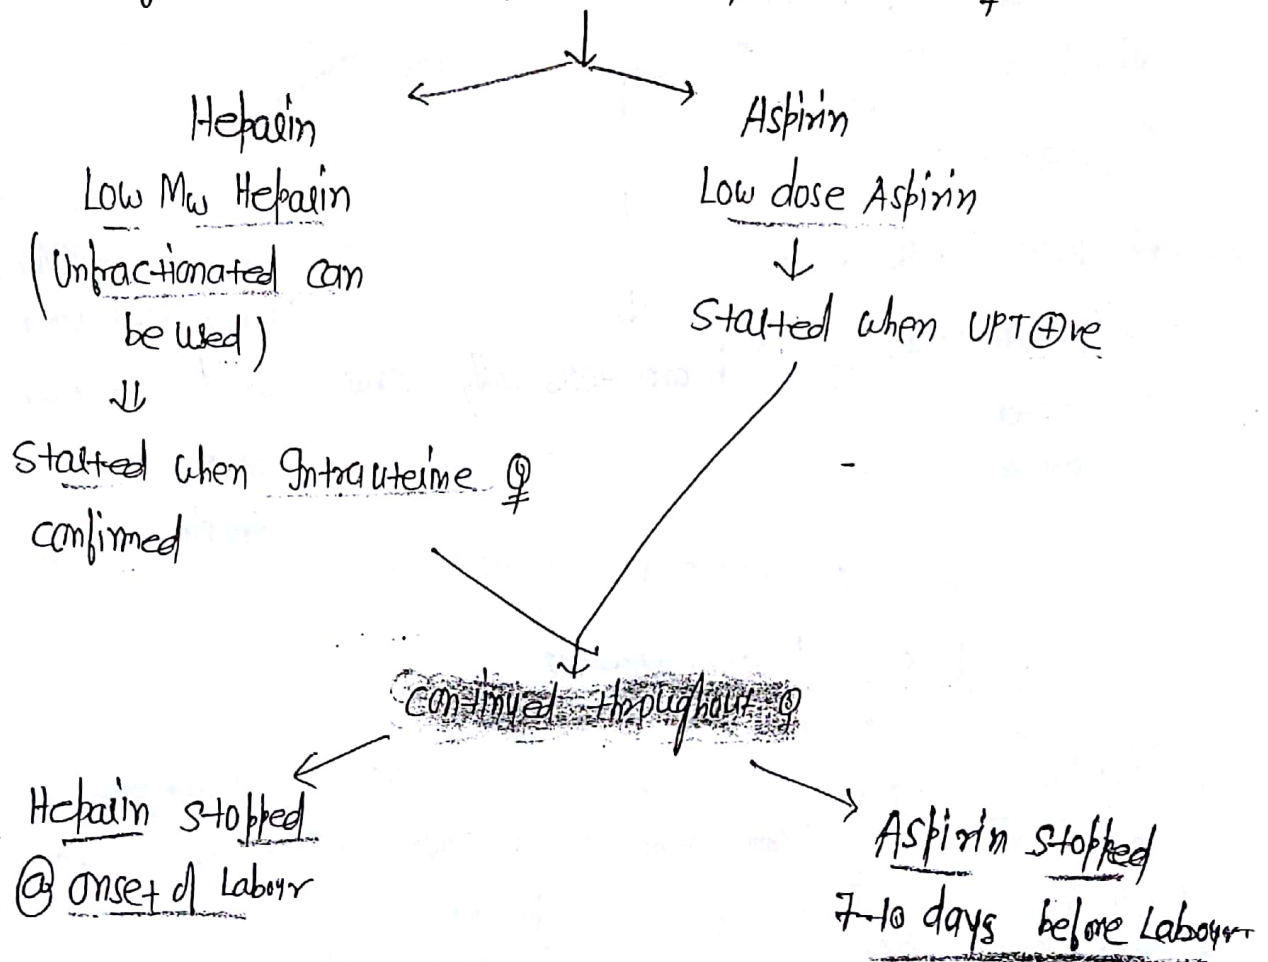 Heparin
Low Mw Heparin
(Unfractionated can
be used)
⇓
Started when Intrauterine ♀
confirmed
Aspirin
Low dose Aspirin
↓
Started when UPT⊕ve
continued throughout ♀
Heparin stopped
@ onset of Labour
Aspirin stopped
7-10 days before Labour